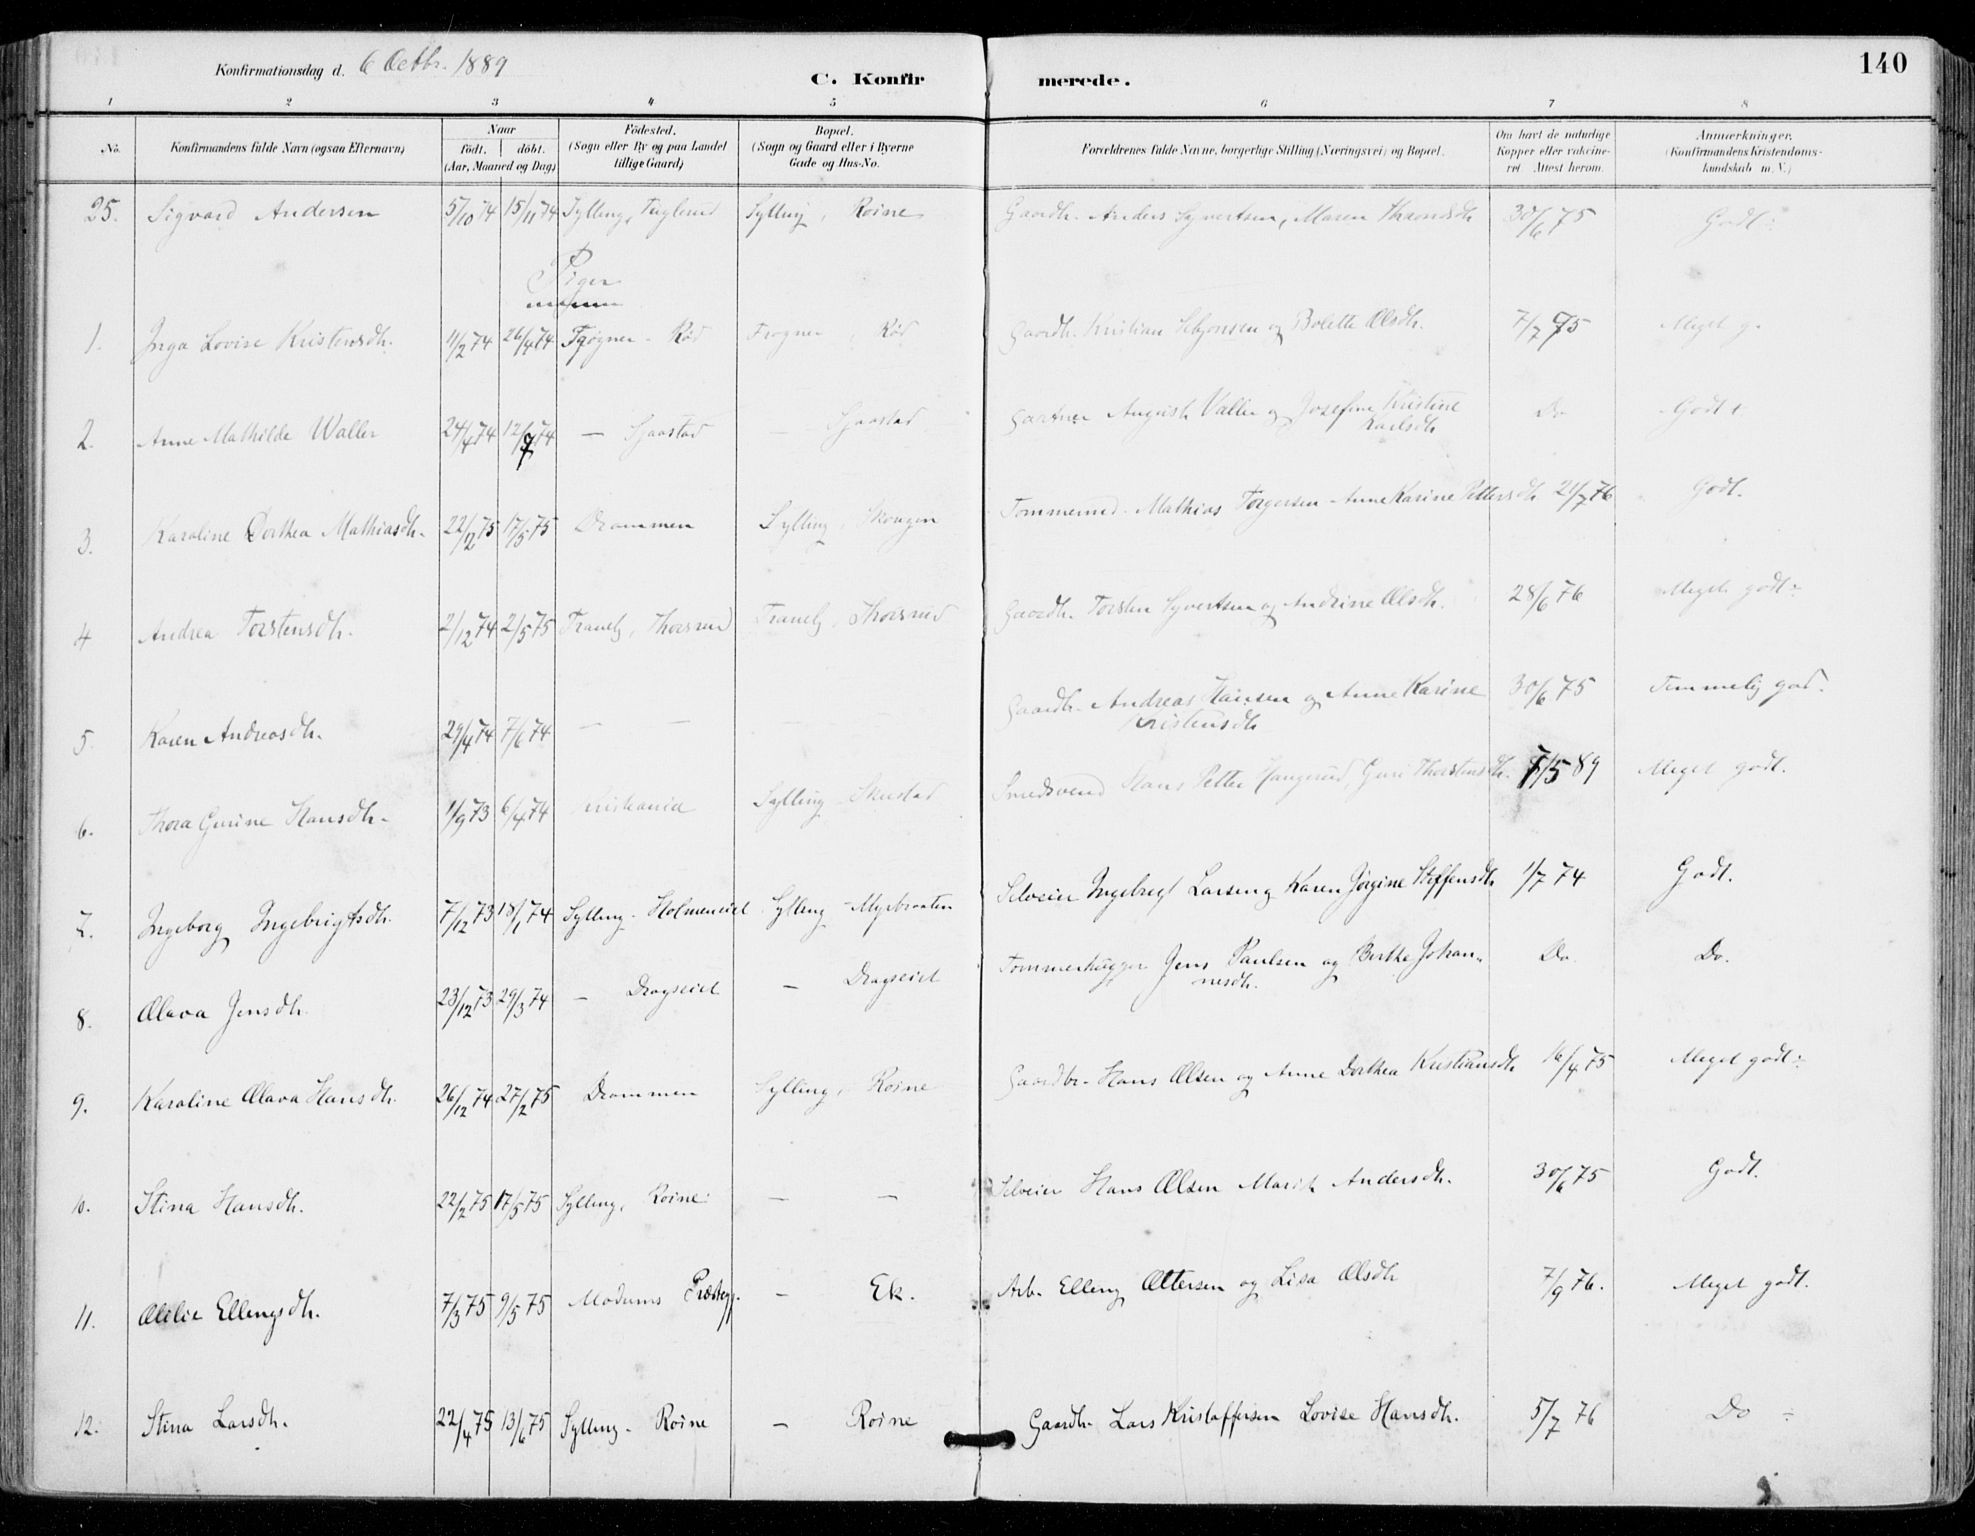 140
Konfirmationsdag d. 6 Octbr. 1889
C. Konfirmerede.
1 2 3 4 5 6 7 8
No. Konfirmandens fulde Navn (ogsaa Efternavn) Naar födt. döbt. (Aar, Maaned og Dag) Födested. (Sogn eller By og paa Landet tillige Gaard) Bopæl. (Sogn og Gaard eller i Byerne Gade og Hus-No. Forældrenes fulde Navne, borgerlige Stilling (Næringsvei) og Bopæl. Om havt de naturlige Kopper eller vakcineret. Attest herom. Anmærkninger. (Konfirmandens Kristendomskundskab m. V.)
25. Sigvard Andersen 5/10 74 15/11 74 Sylling, Fuglerud Sylling, Roine Gaardb. Anders Syvertsen, Maren 30/6 75 Godt
Piger
1. Inga Lovise Kristensdh. 11/2 74 26/4 74 Frogner - Rød Frogner Rød Gaardb. Kristian og Bolette Olsdh. 7/7 75 Meget g.
2. Anne Mathilde Waller 24/4 74 12/7 74 — Sjaastad — Sjaastad Gartner August Valler og Josefine Kristine Karlsdh Do Godt +
3. Karoline Dorthea Mathiasdh. 22/2 75 17/5 75 Drammen Sylling, Skougen Tømmermd. Mathias Torgersen - Anne Karine Pettersdh 21/7 76 Godt.
4 Andrea Torstensdh. 2/12 74 2/5 75 Tranby, Thorsrud Tranby, Thorsrud Gaardb. Torsten Syvertsen og Andrine Olsdh. 28/6 76 Meget godt
5. Karen Andreasdh. 29/4 74 7/6 74 — — — Gaardb. Andreas Hansen og Anne Karine Kristensdh 30/6 75 Temmelig god.
6. Thora Gurine Hansdh. 1/9 73 6/4 74 Kristiania Sylling Skustad Smedsvend Hans Petter Haugerud, Guri Thorstensdh. 7/5 89 Meget godt.
7. Ingeborg Ingebrigtsdh. 7/12 73 18/1 74 Sylling - Holmeneiet Sylling - Myrbraaten Selveier Ingebregt Larsen og Karen Jørgine Steffensdh 1/7 74 Godt.
8. Olava Jensdh. 23/12 73 29/3 74 — Dragseiet — Dragseiet Tømmerhugger Jens Paulsen og Berthe Johannesdh. Do. Do.
9. Karoline Olava Hansdh. 26/12 74 27/2 75 Drammen Sylling, Roine Gaardbr. Hans Olsen og Anne Dorthea Kristiansdh 16/4 75 Meget godt
10. Stina Hansdh. 22/2 75 17/5 75 Sylling, Roine — — Selveier Hans Olsen Marit Andersdh. 30/6 75 Godt.
11. Ellingsdh. 7/3 75 9/5 75 Modums Præstegj. — Ek. Arb. Elling Ottersen og Lisa Olsdh 7/9 76. Meget godt.
12. Stina Larsdh. 22/4 75 13/6 75 Sylling - Roine — Roine Gaardb. Lars Kristoffersen Lovise Hansdh. 5/7 76 Do